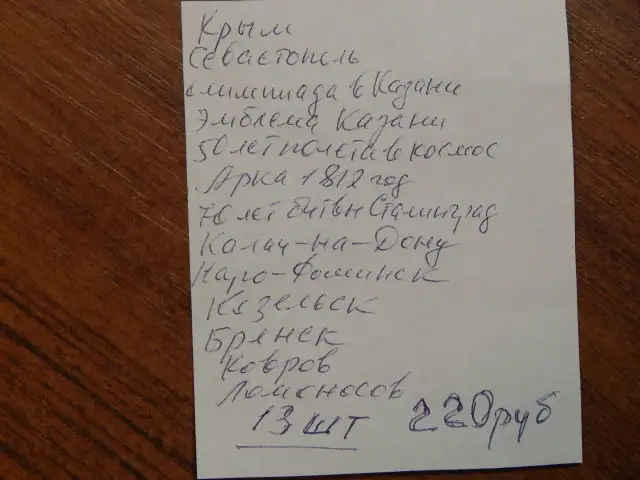 Крым
Севастополь
Олимпиада в Казани
Эмблема Казани
50 лет полета в космос
Арка 1812 год
70 лет битвы Сталинград
Калач-на-Дону
Наро-Фоминск
Козельск
Брянск
Ковров
Ломоносов
13 шт 220 руб